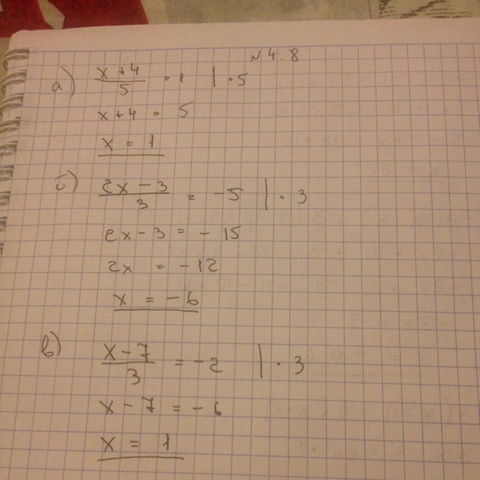 №4.8
а) x+4/5 = 1 | · 5
x+4 = 5
x = 1
б) 2x-3/3 = -5 | · 3
2x-3 = -15
2x = -12
x = -6
в) x-7/3 = -2 | · 3
x-7 = -6
x = 1